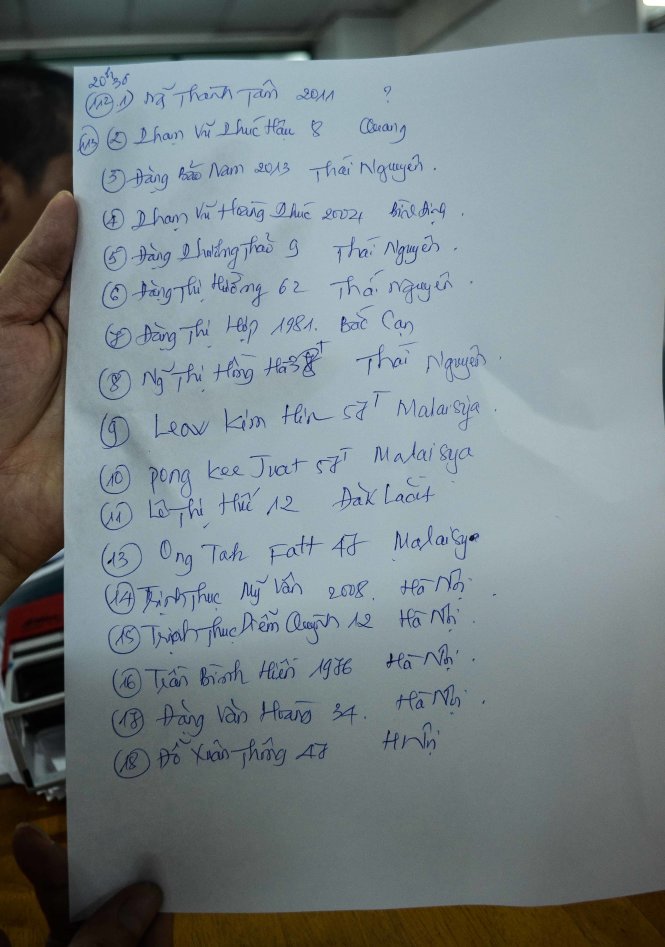 20h36
(112) 1) Ng Thành Tâm 2011 ?
(113) (2) Phạm Vũ Phúc Hậu 8 Quang
(3) Đàng Bảo Nam 2013 Thái Nguyên.
(4) Phạm Vũ Hoàng Phúc 2002 Bình Định.
(5) Đàng Phương Thảo 9 Thái Nguyên.
(6) Đàng Thị Hường 62 Thái Nguyên.
(7) Đàng Thị Hợp 1981. Bắc Cạn
(8) Ng Thị Hồng Hà Thái Nguyên.
(9) Leow Kim Hin 57T Malaisya.
(10) Pong Kee Juat 57T Malaisya
(11) Lê Thị Huế 12 Đăk Lăck
(13) Ong Tah Fatt 47 Malaisya
(14) Trịnh Thục Mỹ Vân 2008. Hà Nội.
(15) Trịnh Thục Diễm Quỳnh 12 Hà Nội.
(16) Trần Bình Hiên 1976 Hà Nội.
(17) Đàng Văn Hoàng 34. Hà Nội.
(18) Đỗ Xuân Thông 47 HNội